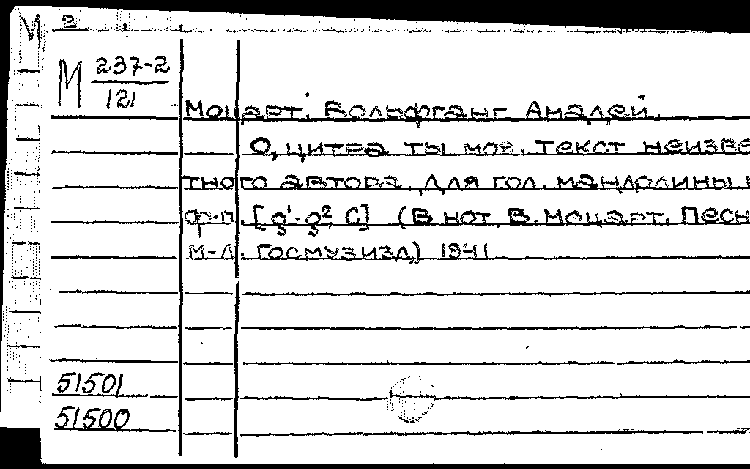 М 2
М 237-2
121
Моцарт, Вольфганг Амадей.
О, цитра ты моя. Текст неизве
тного автора. Для гол. мандолины и
ф-п. [g¹-g², C] (В нот. В. Моцарт. Песн
М-Л. Госмузизд) 1941
51501
51500